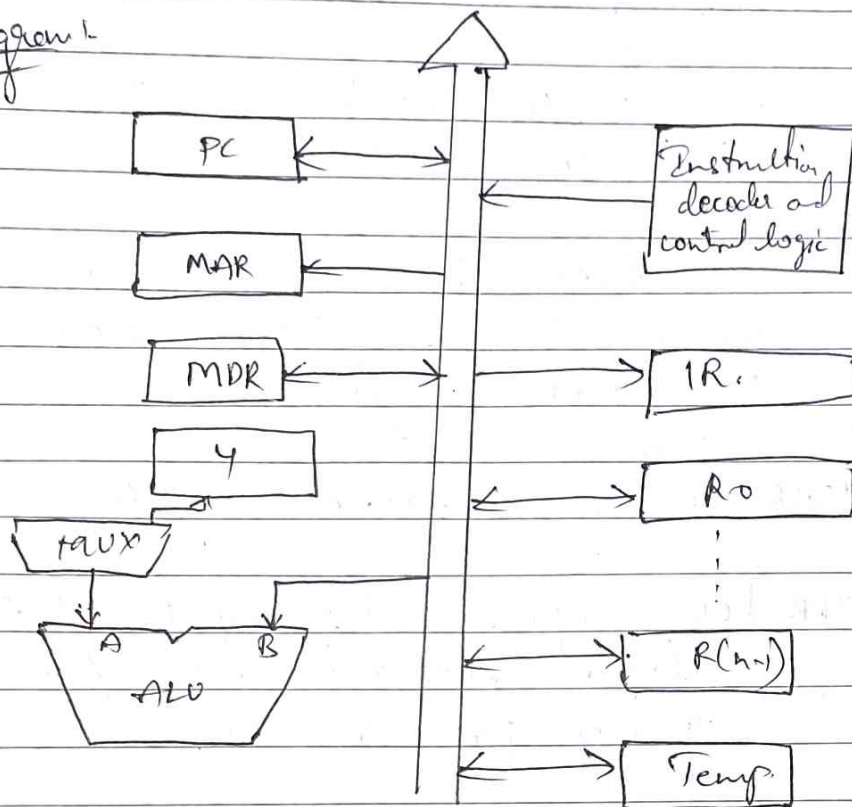 PC
Instruction
decoder and
control logic
MAR
MDR
IR.
Y
R0
MUX
A B
ALU
R(n-1)
Temp.